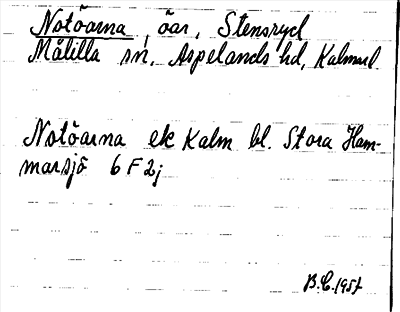 Notöarna, öar, Stensryd
Målilla sn, Aspelands hd, Kalmarl.
Notöarna ek Kalm bl. Stora Ham-
marsjö 6 F 2j
B.C. 1957